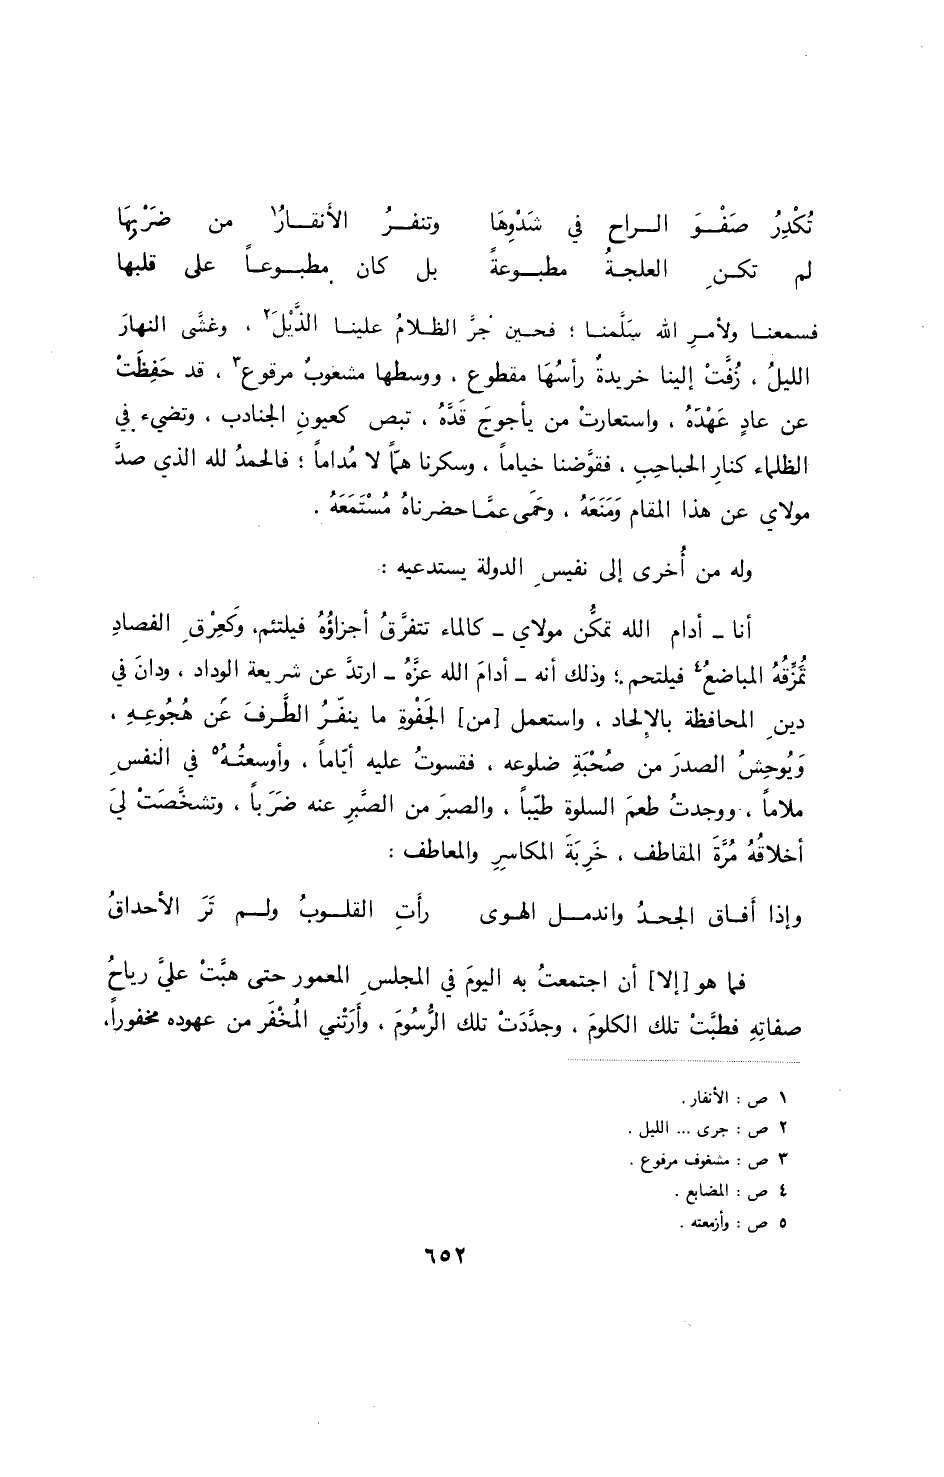 تُكْدِرُ صَفْوَ الراح في شَدْوِهَا وتنفرُ الأَنقارُ١ من ضَرْبِهَا
لم تكنِ العلجةُ مطبوعةً بل كان مطبوعاً على قلبها
فسمعنا ولأمرِ الله سَلَّمنا ؛ فحين جُرَّ الظلامُ علينا الذَّيْلَ٢ ، وغشَّى النهارَ
الليلُ ، زُفَّتْ إلينا خريدةٌ رأسُهَا مقطوع ، ووسطها مشعوبٌ مرقوع٣ ، قد حَفِظَتْ
عن عادٍ عَهْدَهُ ، واستعارتْ من يأجوجَ قَدَّهُ ، تبص كعيونِ الجنادب ، وتضيء في
الظلماء كنارِ الحباحِبِ ، فقوَّضنا خياماً ، وسكرنا همّاً لا مُداماً ؛ فالحمدُ لله الذي صدَّ
مولاي عن هذا المقام وَمَنَعَهُ ، وحَمَى عمَّا حضرناهُ مُسْتَمَعَهُ .
وله من أُخرى إلى نفيسِ الدولة يستدعيه :
أنا ــ أدام الله تمكُّن مولاي ــ كالماء تتفرَّقُ أجزاؤُهُ فيلتئم، وكَعِرْقِ الفصادِ
تُمَزِّقهُ المباضعُ٤ فيلتحم ؛ وذلك أنه ــ أدامَ الله عزَّهُ ــ ارتدَّ عن شريعة الوداد ، ودانَ في
دينِ المحافظة بالإلحاد ، واستعمل [من] الجَفْوةِ ما ينفّرُ الطَّرفَ عَن هُجُوعِهِ ،
وَيُوحِشُ الصدرَ من صُحْبَةِ ضلوعه ، فقسوتُ عليه أيّاماً ، وأوسعتُهُ٥ في النفسِ
ملاماً ، ووجدتُ طعمَ السلوة طيّباً ، والصبرَ من الصَّبرِ عنه ضَرَباً ، وتشخَّصَتْ ليَ
أخلاقُهُ مُرَّةَ المقاطف ، خَرِبَةَ المكاسرِ والمعاطف :
وإذا أفاق الجحدُ واندمل الهوى رأتِ القلوبُ ولم تَرَ الأحداقُ
فما هو [إلا] أن اجتمعتُ به اليومَ في المجلسِ المعمور حتى هبَّتْ عليَّ رياحُ
صفاتِهِ فطبَّتْ تلك الكلومَ ، وجدَّدَتْ تلك الرُّسُومَ ، وأرَتْني المُخْفَر من عهوده مخفوراً،
١ ص : الأنفار .
٢ ص : جرى ... الليل .
٣ ص : مشغوف مرفوع .
٤ ص : المضابع .
٥ ص : وأزمعته .
٦٥٢